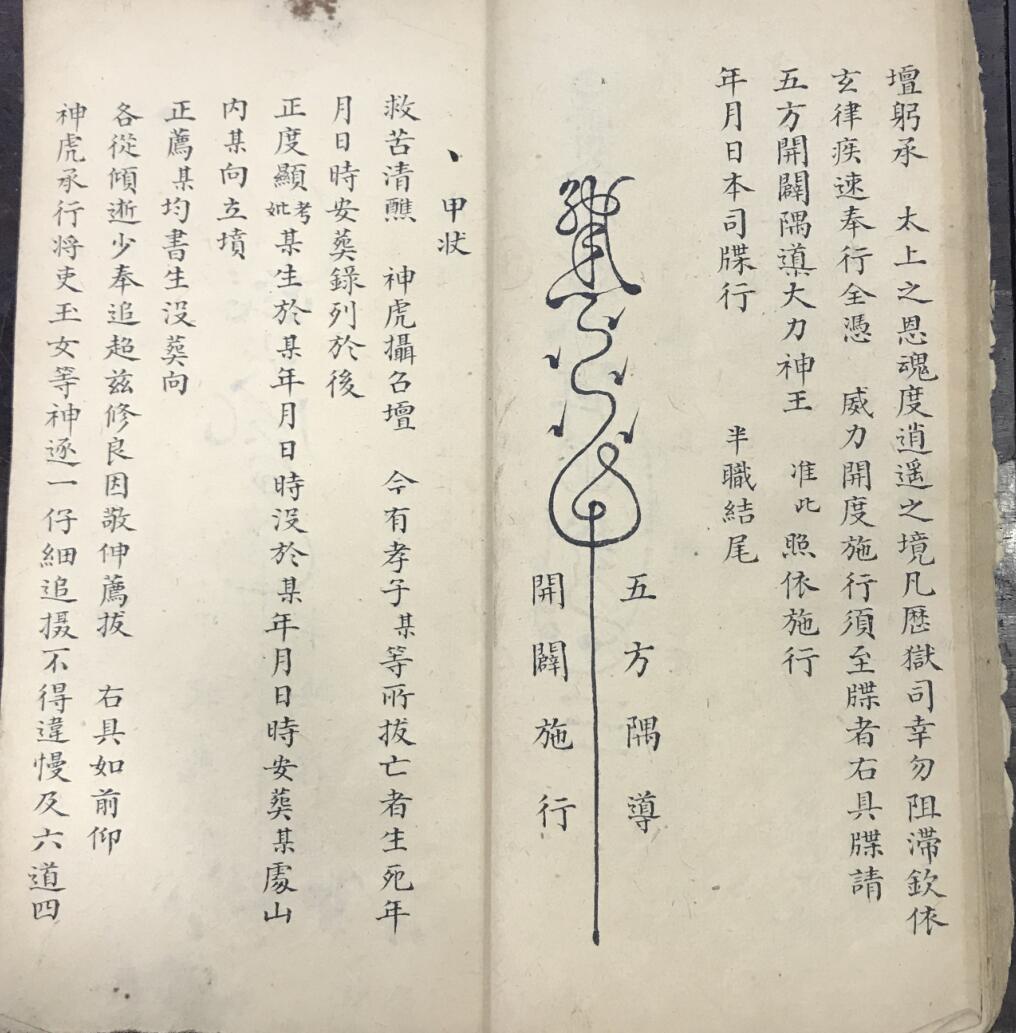 壇躬承　太上之恩魂度逍遥之境凡歷獄司幸勿阻滯欽依
玄律疾速奉行全憑　威力開度施行須至牒者右具牒請
五方開闢隅導大力神王　准此照依施行
年月日本司牒行　　半職結尾
五方隅導
開闢施行
、甲状
救苦清醮　神虎攝召壇　今有孝子某等所拔亡者生死年
月日時安葬錄列於後
正度顯考妣某生於某年月日時没於某年月日時安葬某處山
内某向立墳
正薦某均書生没葬向
各從傾逝少奉追超兹修良因敬伸薦拔　右具如前仰
神虎承行将吏玉女等神逐一仔細追摄不得違慢及六道四